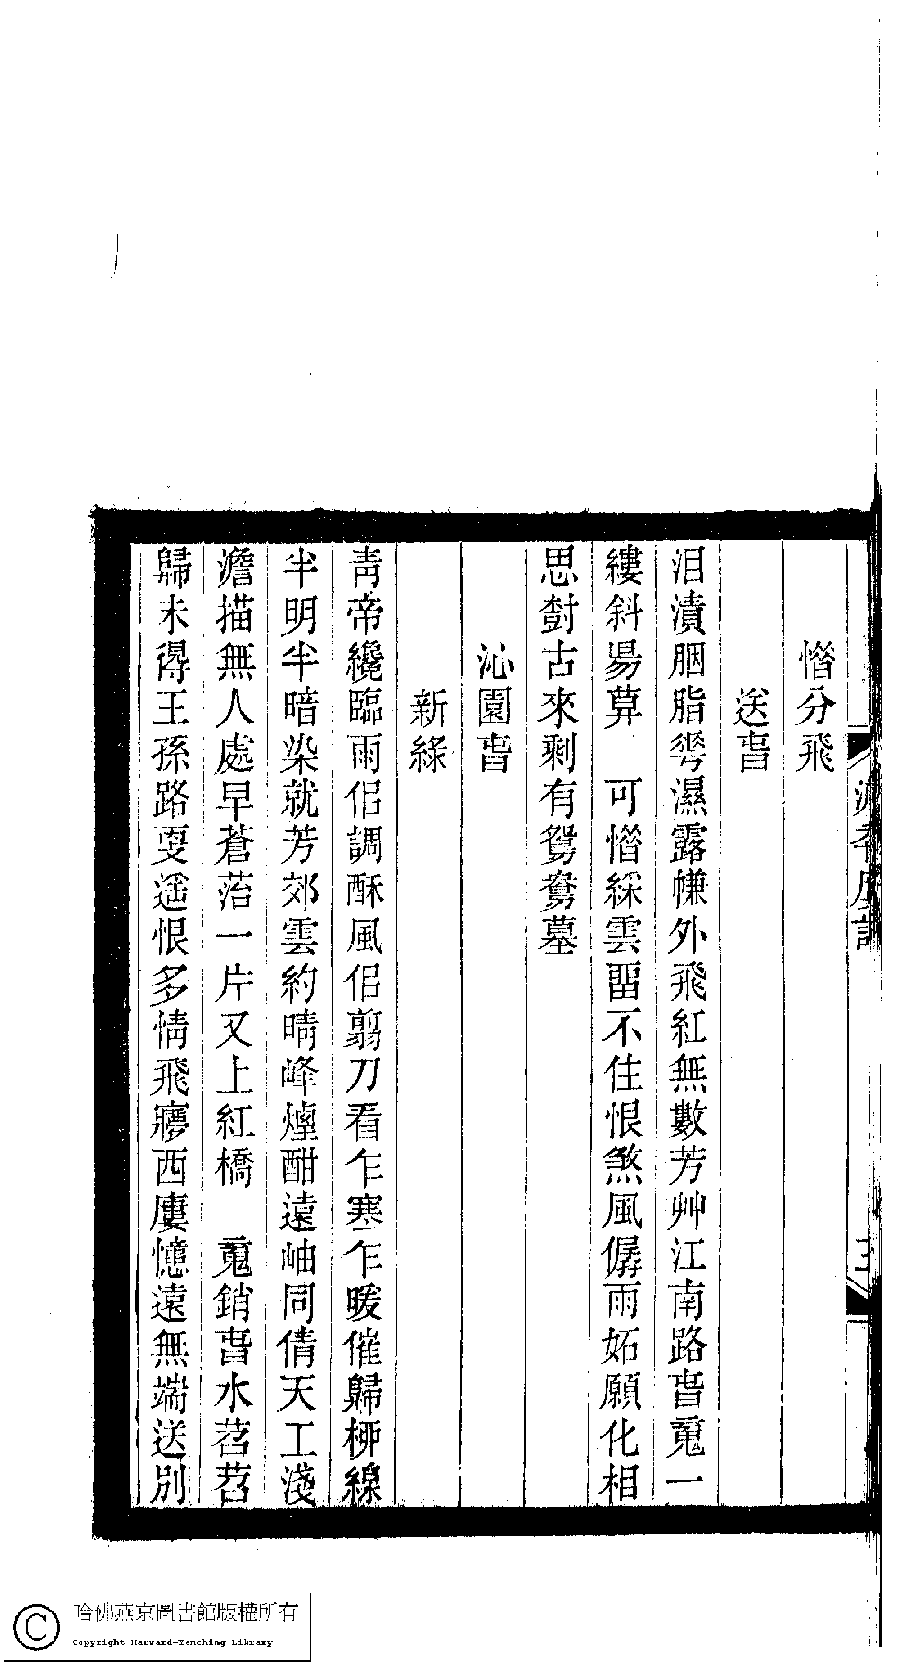 惜分飛
送萅
泪漬胭脂䔢濕露㡘外飛紅無數芳艸江南路萅䰟一
縷斜昜算　可惜綵雲畱不住恨煞風僝雨妬願化相
思對古來剩有鴛鴦墓
沁園萅
新綠
青帝纔臨雨佀調酥風佀翦刀看乍寒乍暖催歸桺線
半明半暗染就芳郊雲約晴峰煙酣遠岫同倩天工淺
澹描無人處早蒼苔一片又上紅橋　䰟銷萅水苕苕
歸未得王孫路更遙恨多情飛夢西廔憶遠無端送別
哈佛燕京圖書館版權所有
Copyright Harvard-Yenching Library